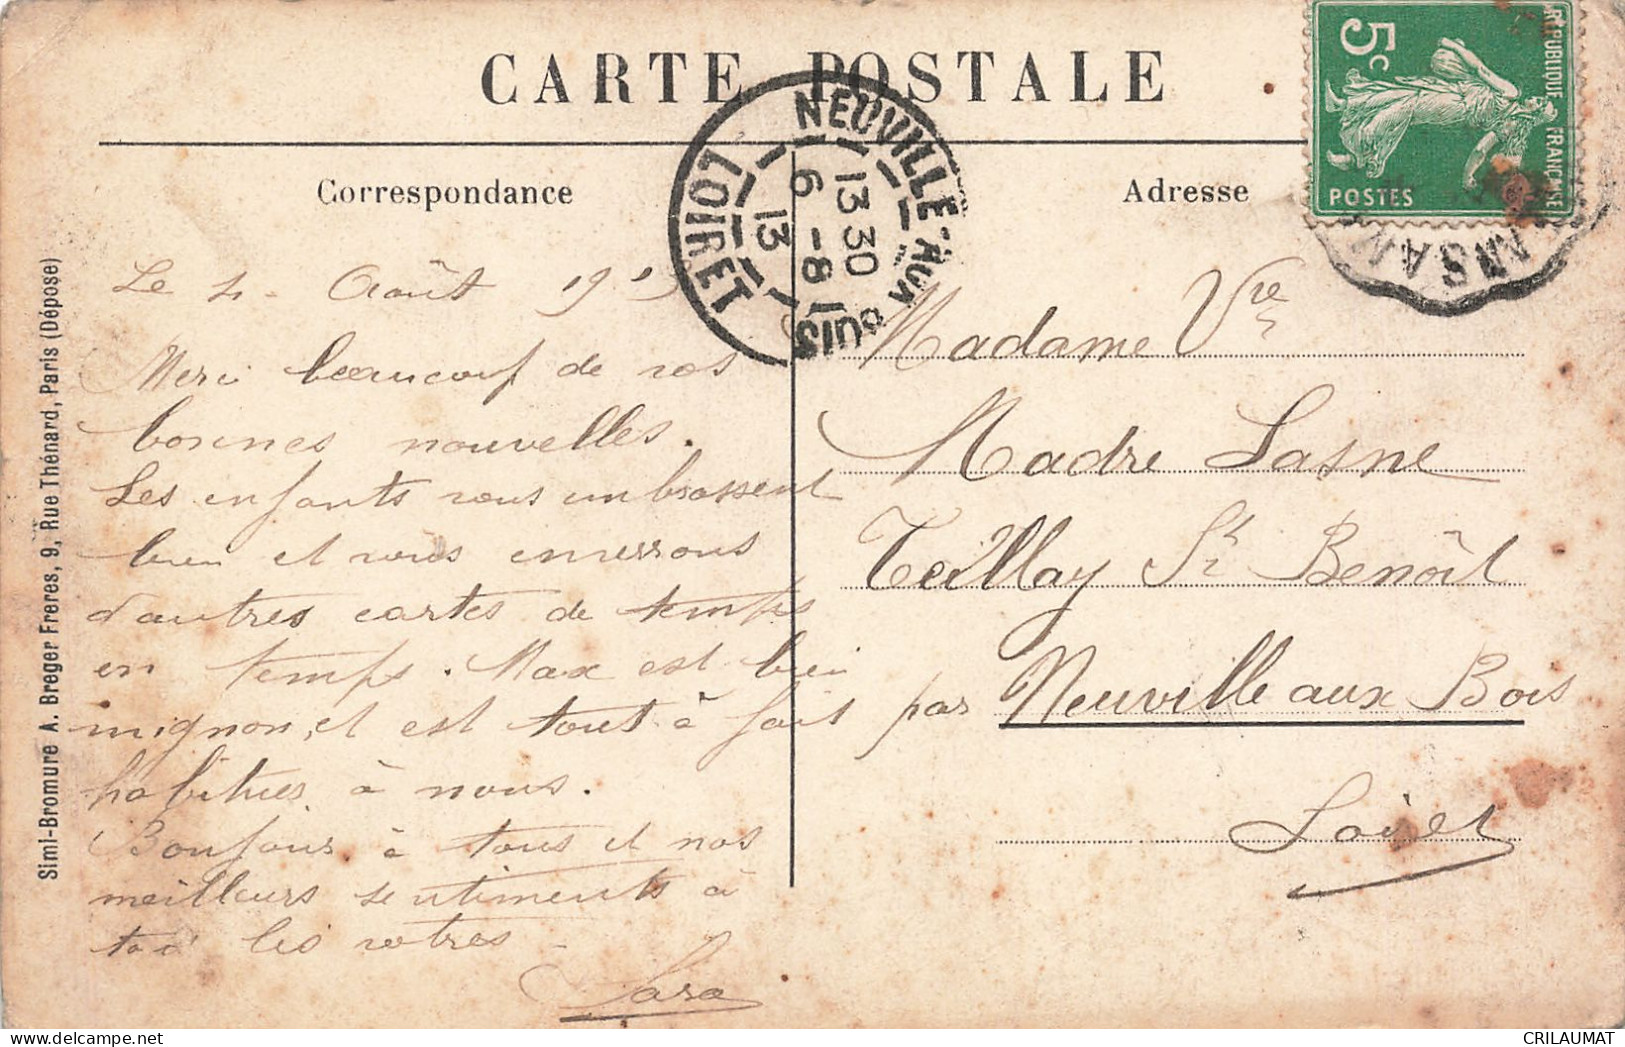 CARTE POSTALE
Correspondance
Adresse
5c
REPUBLIQUE FRANÇAISE
POSTES
NEUVILLE-AUX-BOIS
13 30
6 - 8
13
LOIRET
Simi-Bromure A. Breger Freres, 9, Rue Thénard, Paris (Déposé)
Le 4 Août 1913
Merci beaucoup de vos
bonnes nouvelles.
Les enfants vous embrassent
bien et vous enverrons
d'autres cartes de temps
en temps. Max est bien
mignon, et est tout à fait
habitués à nous.
Bonjour à tous et nos
meilleurs sentiments à
les votres
Madame Vve
Madre Lasne
Teillay St Benoît
par Neuville aux Bois
Loiret
CRILAUMAT